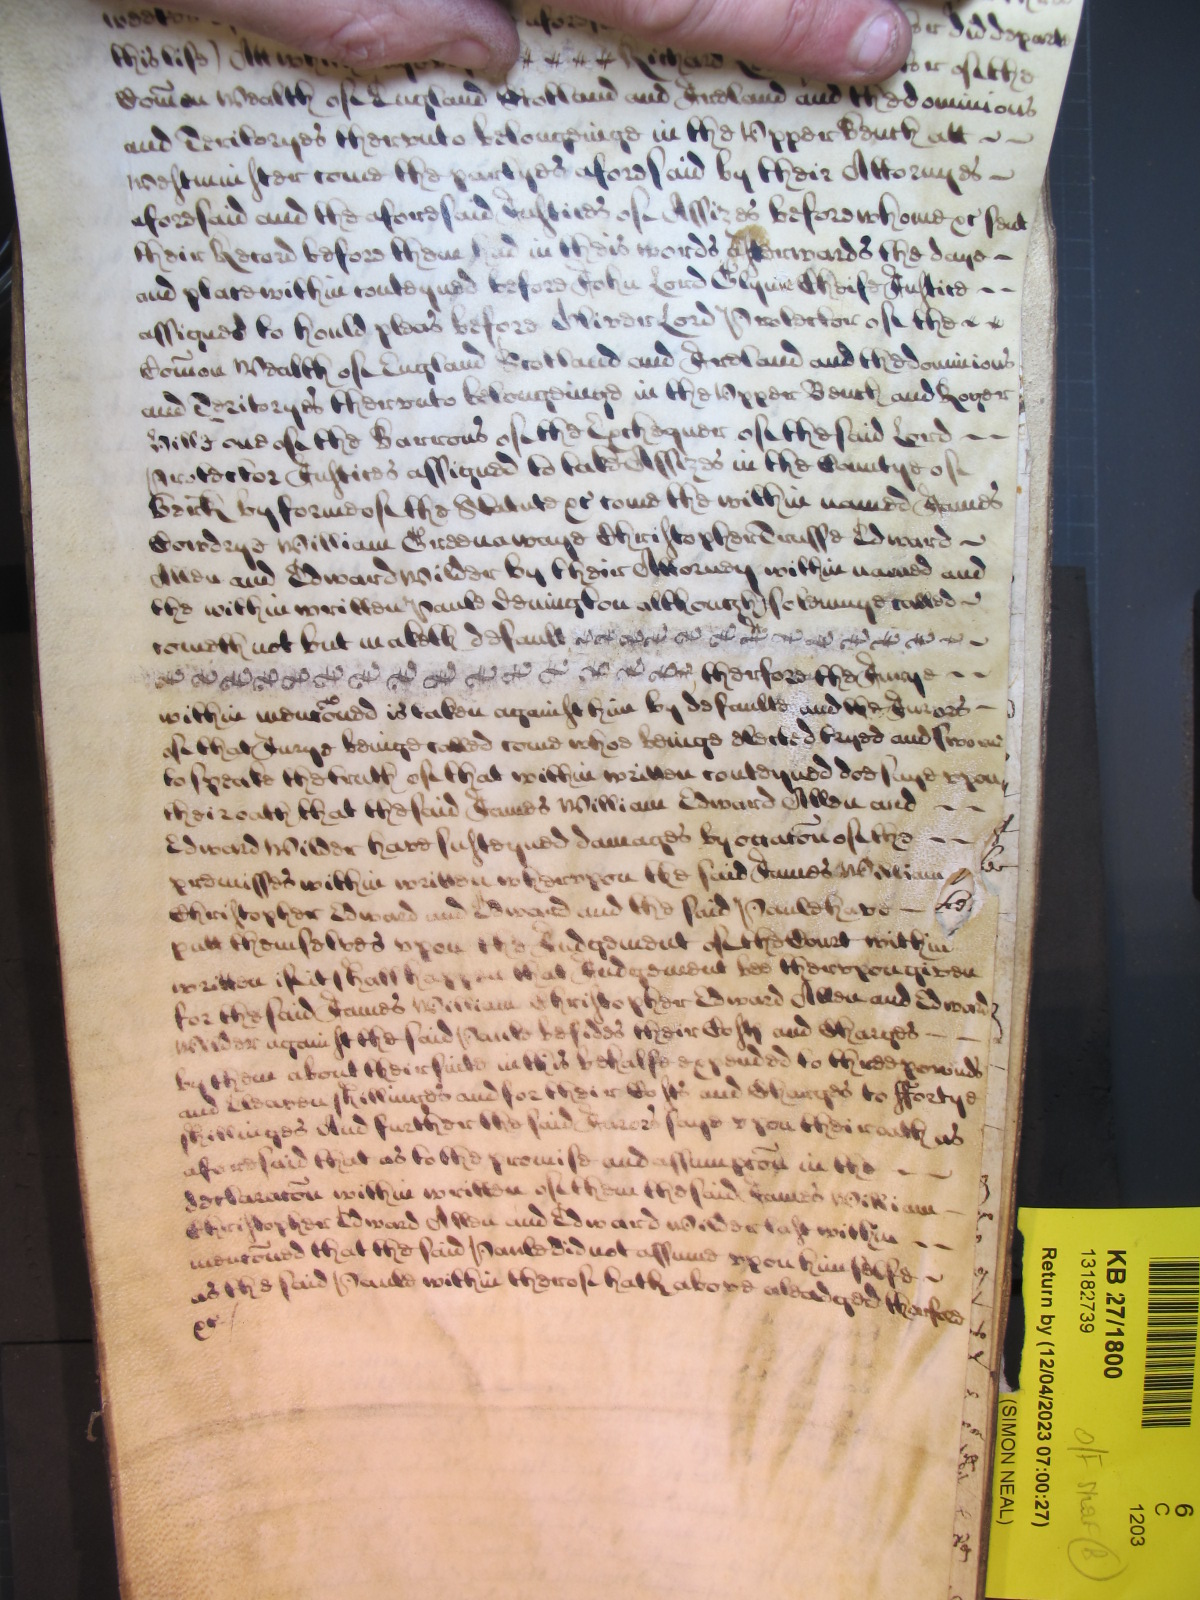 did depart
this life) Att which # # # # Richard of the
Com̄on Wealth of England Scotland and Ireland and the dominions
and Teritoryes therunto belongeinge in the Vpper Bench att
Westminster come the partyes aforesaid by their Attornyes
aforesaid and the aforesaid Justices of Assizes before whome &c sent
their Record before them had in theis words Afterwards the daye
and place within conteyned before John Lord Glynne Cheife Justice
assigned to hould pleas before Oliver Lord Protector of the
Com̄on Wealth of England Scotland and Ireland and the dominions
and Teritoryes therunto belongeinge in the Vpper Bench and Roger
Hill one of the Barrons of the Exchequer of the said Lord
Protector Justices assigned to take Assizes in the Countye of
Berk by forme of the Statute &c come the within named James
Cowdrye William Greenawaye Christopher Trusse Edward
Allen and Edward Wilder by their Attorney within named and
the within written Paule Denington although solemnye called
cometh not but maketh default
therfore the Jurye
within menc̄oned is taken against him by defaulte and the Jurors
of that Jurye beinge called come whoe beinge elected tryed and sworne
to speake the truth of that within written conteyned doe saye vpon
their oath that the said James William Edward Allen and
Edward Wilder have susteyned damages by occac̄on of the
premisses within written wherevpon the said James William
Christopher Edward and Edward and the said Paule have
putt themselves vpon the Judgement of the Court within
written if it shall happen that Judgement bee thervpon given
for the said James William Christopher Edward Allen and Edward
Wilder against the said Paule besides their Costs and Charges
by them about their suite in this behalfe expended to three pounds
and Eleaven shillinges and for their Costs and Charges to ffortye
shillinges And further the said Jurors saye vpon their oath as
aforesaid that as to the promise and assumpc̄on in the
declarac̄on within written of them the said James William
Christopher Edward Allen and Edward Wilder last within
menc̄oned that the said Paule did not assume vpon himselfe
as the said Paule within therof hath above aleadged therfore
&c
KB 27/1800
13182739
Return by (12/04/2023 07:00:27)
(SIMON NEAL)
6
C
1203